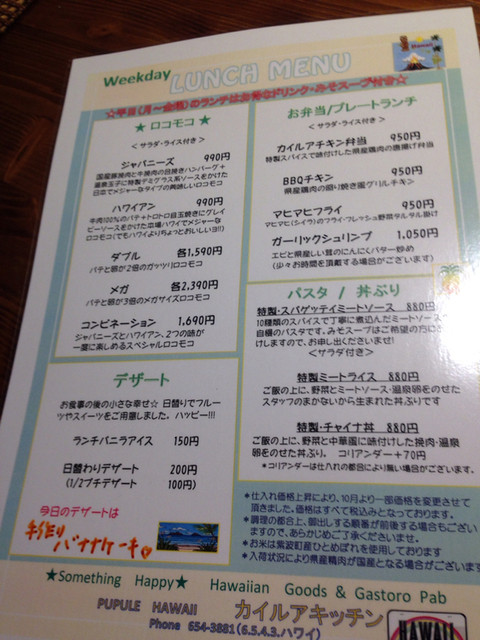 Weekday
LUNCH MENU
☆平日(月～金曜)のランチはお得なドリンク・みそスープ付き☆
★ ロコモコ ★
＜サラダ・ライス付き＞
ジャパニーズ 990円
国産豚挽肉と牛挽肉の目挽きハンバーグ＋
温泉玉子に特製デミグラス系ソースをかけた
日本でメジャーなタイプの美味しいロコモコ
ハワイアン 990円
牛肉100%のパテ＋トロトロ目玉焼きにグレイ
ビーソースをかけた本場ハワイでメジャーな
ロコモコ(でもハワイよりちょっとおいしいヨ!!)
ダブル 各1,590円
パテと卵が2倍のガッツリロコモコ
メガ 各2,390円
パテと卵が3倍のメガサイズロコモコ
コンビネーション 1,690円
ジャパニーズとハワイアン、2つの味が
一度に楽しめるスペシャルロコモコ
デザート
お食事の後の小さな幸せ☆ 日替りでフルー
ツやスイーツをご用意しました。ハッピー!!!
ランチバニラアイス 150円
日替わりデザート 200円
(1/2プチデザート 100円)
今日のデザートは
手作り
バナナケーキ
お弁当/プレートランチ
＜サラダ・ライス付き＞
カイルアチキン弁当 950円
特製スパイスで味付けした県産鶏肉の唐揚げ弁当
BBQチキン 950円
県産鶏肉の照り焼き風グリルチキン
マヒマヒフライ 950円
マヒマヒ(シイラ)のフライ・フレッシュ野菜タルタル掛け
ガーリックシュリンプ 1,050円
エビと県産しい茸のにんにくバター炒め
(少々お時間を頂戴する場合がございます)
パスタ / 丼ぶり
特製・スパゲッティミートソース 880円
10種類のスパイスで丁寧に煮込んだミートソース
自慢のパスタです。みそスープはご希望の方に
けしますので、お申し出くださいませ!
＜サラダ付き＞
特製ミートライス 880円
ご飯の上に、野菜とミートソース・温泉卵をのせた
スタッフのまかないから生まれた丼ぶりです
特製・チャイナ丼 880円
ご飯の上に、野菜と中華風に味付けした挽肉・温泉
卵をのせた丼ぶり。 コリアンダー＋70円
＊コリアンダーは仕入れの都合により無い場合がございます。
＊仕入れ価格上昇により、10月より一部価格を変更させて
頂きました。価格はすべて税込みとなっております。
＊調理の都合上、御出しする順番が前後する場合もござい
ますので、あらかじめご了承くださいませ。
＊お米は紫波町産ひとめぼれを使用しております
＊入荷状況により県産精肉が国産となる場合がございます
★Something Happy★ Hawaiian Goods & Gastoro Pab
PUPULE HAWAII カイルアキッチン
Phone 654-3881(6.5.4.3.ハワイ)
HAWAII